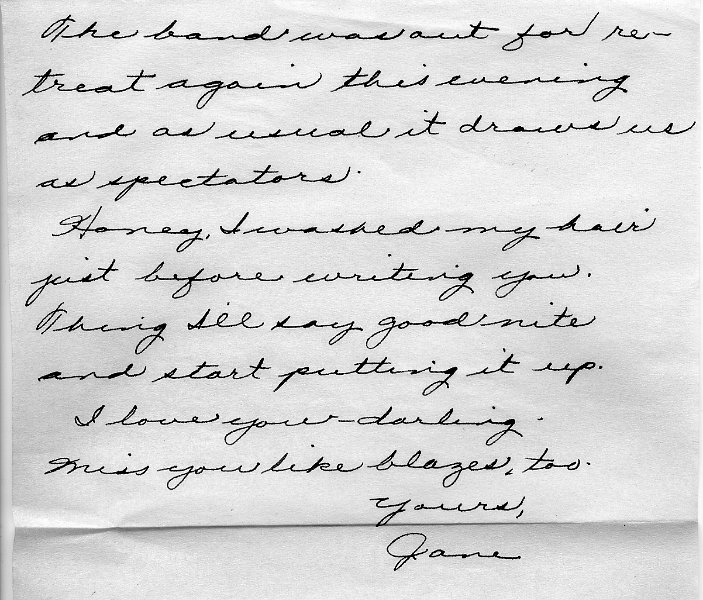 The band was out for re-
treat again this evening
and as usual it draws us
as spectators.
Honey, I washed my hair
just before writing you.
Thing I'll say good nite
and start putting it up.
I love you - darling.
Miss you like blazes, too.
Yours,
Jane